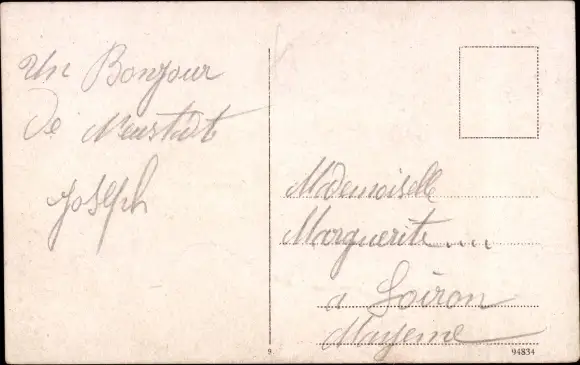 Un Bonjour
de Neustadt
Joseph
Mademoiselle
Marguerite ...
a Loiron
Mayenne
9
94834